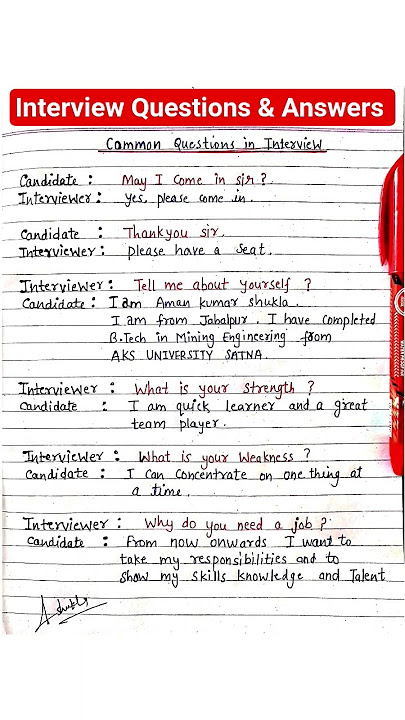 Interview Questions & Answers
Common Questions in Interview
Candidate : May I come in sir ?
Interviewer : yes, please come in.
Candidate : Thankyou sir.
Interviewer : please have a seat.
Interviewer : Tell me about yourself ?
Candidate : I am Aman kumar shukla.
I am from Jabalpur. I have completed
B.Tech in Mining Engineering from
AKS UNIVERSITY SATNA.
Interviewer : What is your strength ?
Candidate : I am quick learner and a great
team player.
Interviewer : What is your Weakness ?
Candidate : I can concentrate on one thing at
a time.
Interviewer : Why do you need a job ?
Candidate : From now onwards I want to
take my responsibilities and to
show my skills knowledge and Talent